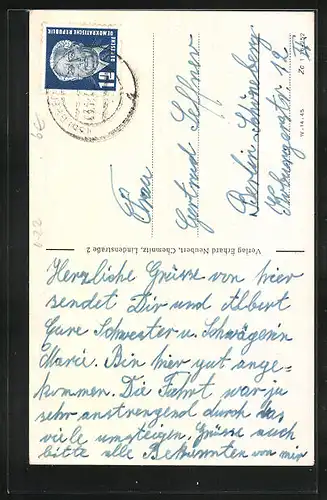 Herzliche Grüsse von hier
sendet Dir und Albert
Eure Schwester u. Schwägerin
Marie. Bin hier gut ange-
kommen. Die Fahrt war ja
sehr anstrengend durch das
viele umsteigen. Grüsse auch
bitte alle Bekannten von mir
Verlag Erhard Neubert, Chemnitz, Lindenstraße 2
Frau
Gertrud
Berlin-Schöneberg
12
DEUTSCHE
DEMOKRATISCHE REPUBLIK
12